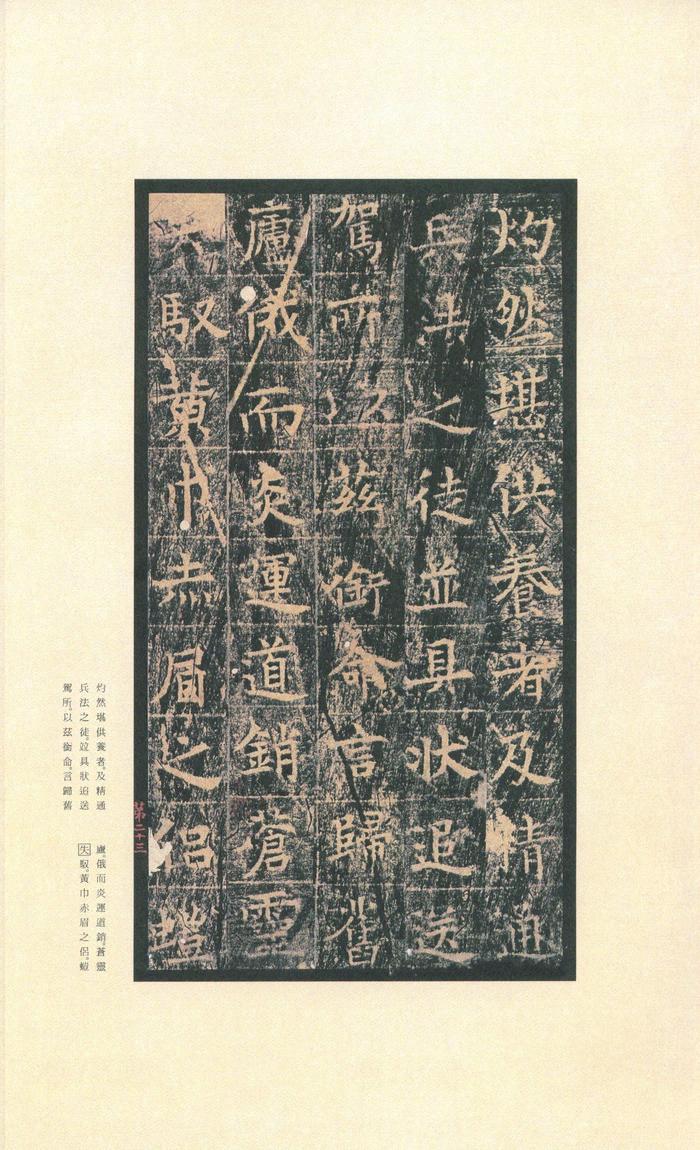 灼然堪供養者及精通
兵法之徒並具狀追送
駕所以茲銜命言歸舊
廬俄而炎運道銷蒼靈
失馭黃巾赤眉之侶
第二十三
灼然堪供養者。及精通
兵法之徒。竝具狀追送
駕所。以茲銜命。言歸舊
廬。俄而炎運道銷。蒼靈
失馭。黃巾赤眉之侶。